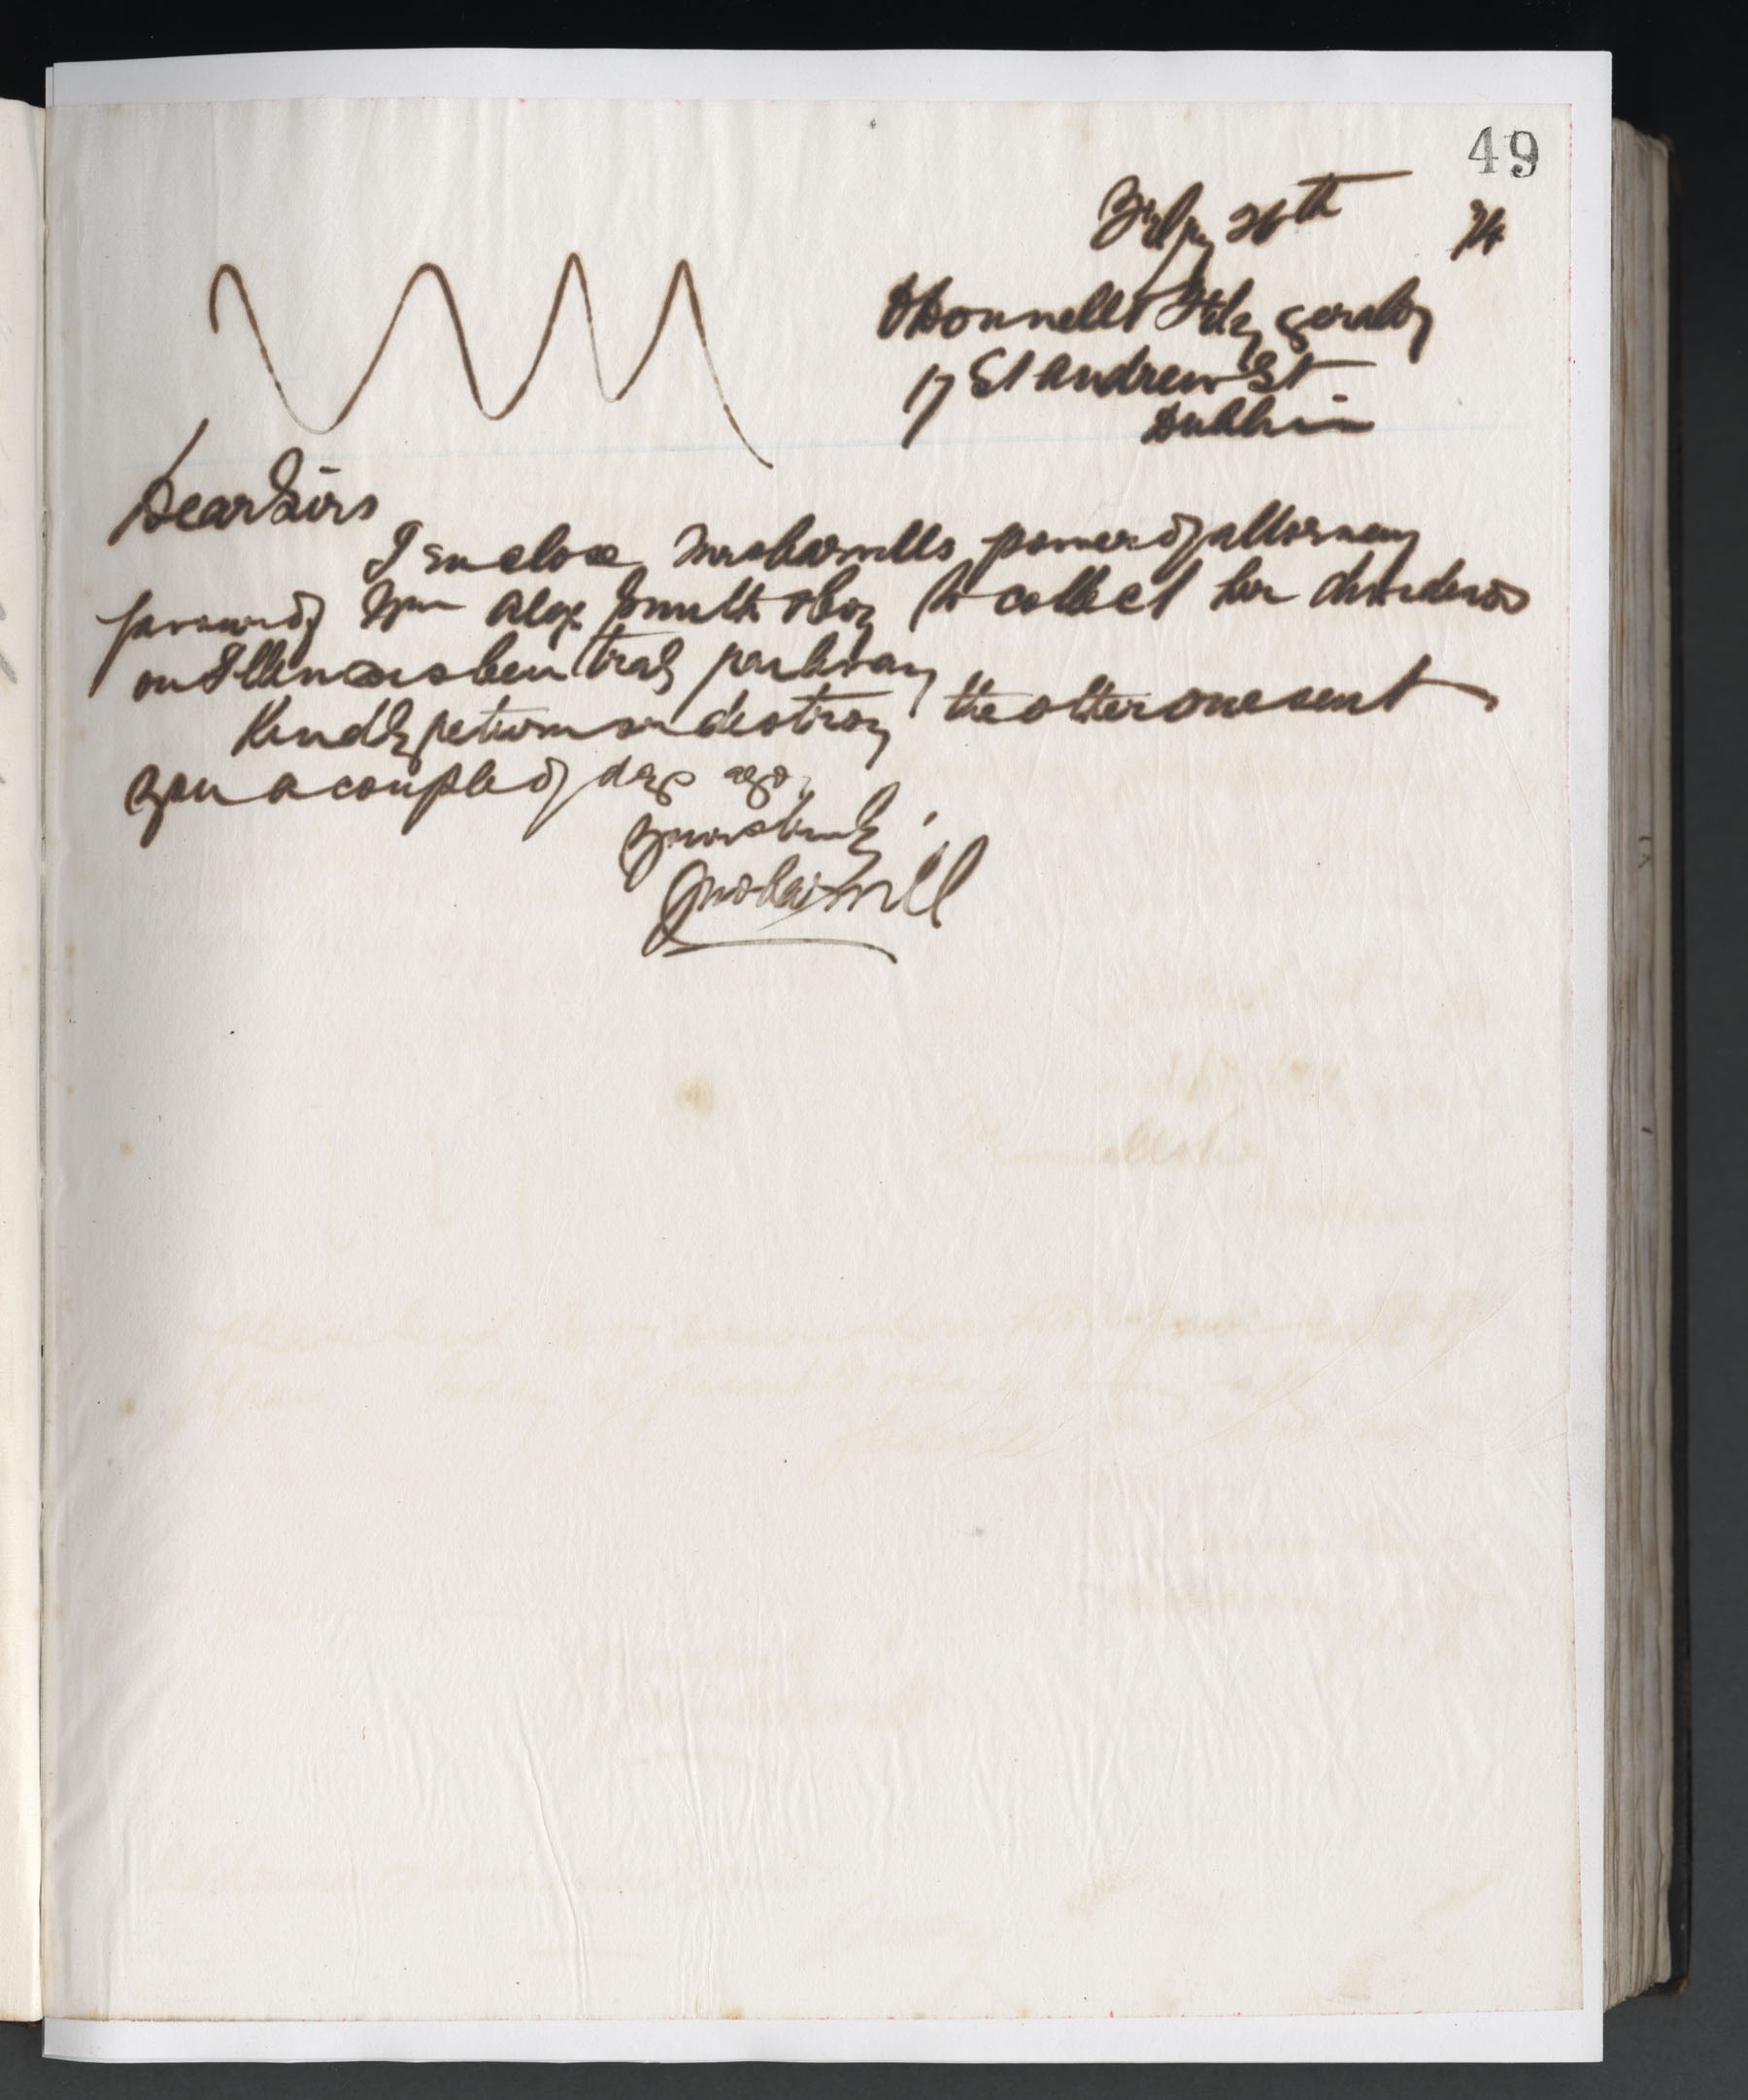 49
Feby 26th 94
O'Donnell & Fitzgerald
17 St Andrew St
Dublin
Dear Sirs
I enclose Mrs Cahills power of attorney
favour of Wm Alex. Smith & Coy to collect her dividends
on Illinois Central railway
Kindly return or destroy the other one sent
you a couple of days ago.
Yours truly